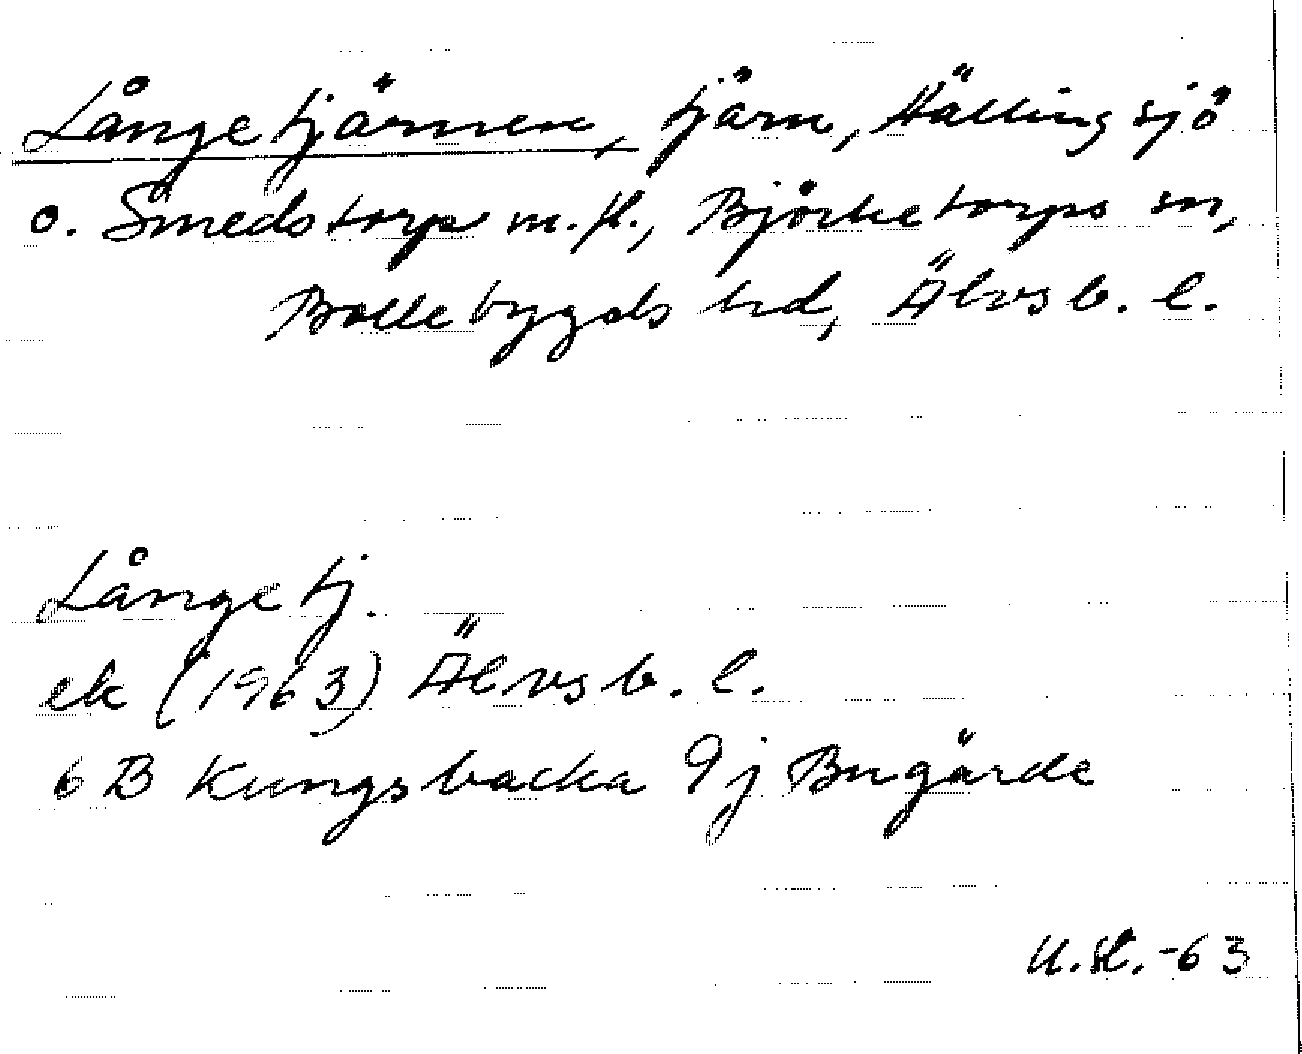 Långetjärnen, tjärn, Hällingsjö
o. Smedstorps m.fl., Björketorps sn,
Bollebygds hd, Älvsb. l.
Långetj.
ek (1963) Älvsb. l.
6 B Kungsbacka 9j Bugärde
U.H. -63